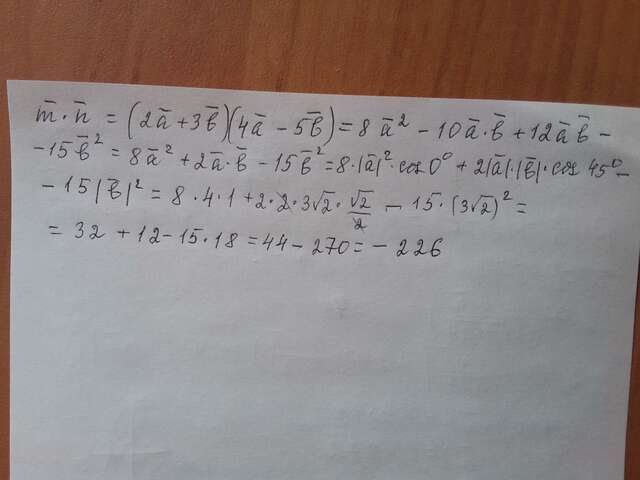 m̄·n̄ = (2ā+3b̄)(4ā - 5b̄) = 8ā² - 10ā·b̄ + 12āb̄ -
- 15b̄² = 8ā² + 2ā·b̄ - 15b̄² = 8·|ā|²·cos0° + 2|ā|·|b̄|·cos45° -
- 15|b̄|² = 8·4·1 + 2·2·3√2·√2/2 - 15·(3√2)² =
= 32 + 12 - 15·18 = 44 - 270 = - 226